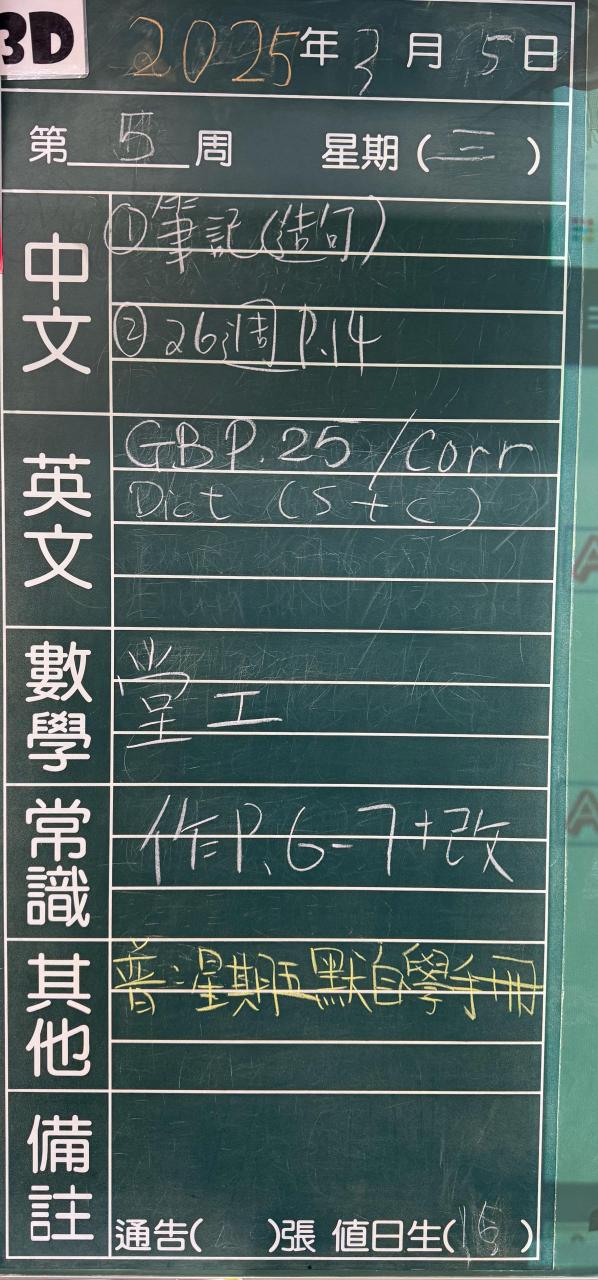 3D
2025年3月5日
第5周 星期(三)
中文
①筆記(造句)
②26週 P.14
英文
GB P.25 / Corr
Dict (S + C)
數學
堂工
常識
作P.6-7+改
其他
普:星期五默自學手冊
備註
通告( )張 值日生(16)